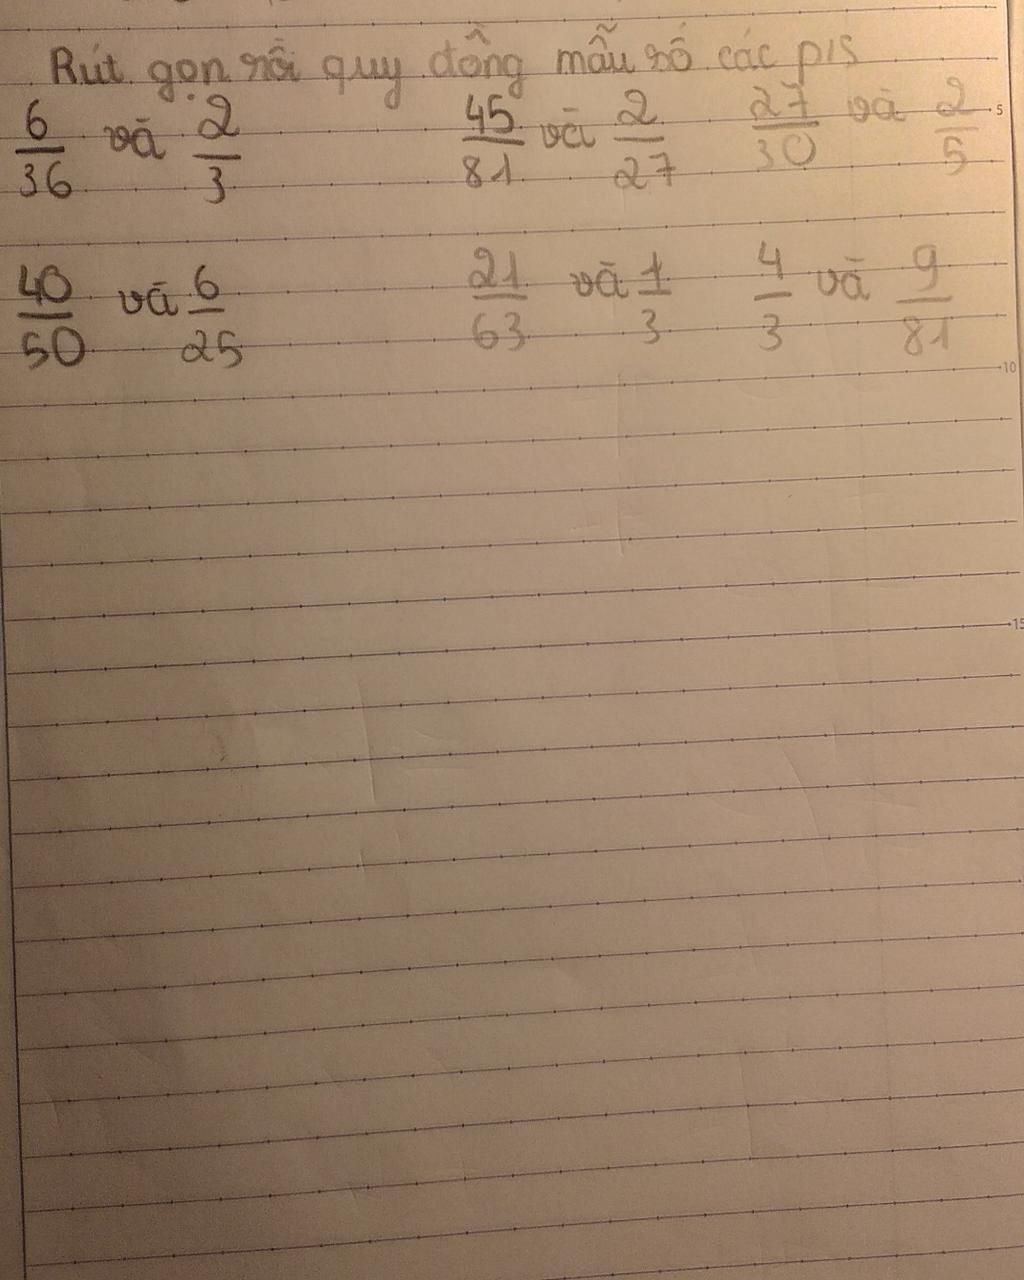 Rút gọn rồi quy đồng mẫu số các p/s
6/36 và 2/3 45/81 và 2/27 27/30 và 2/5
40/50 và 6/25 21/63 và 1/3 4/3 và 9/81
5
10
15